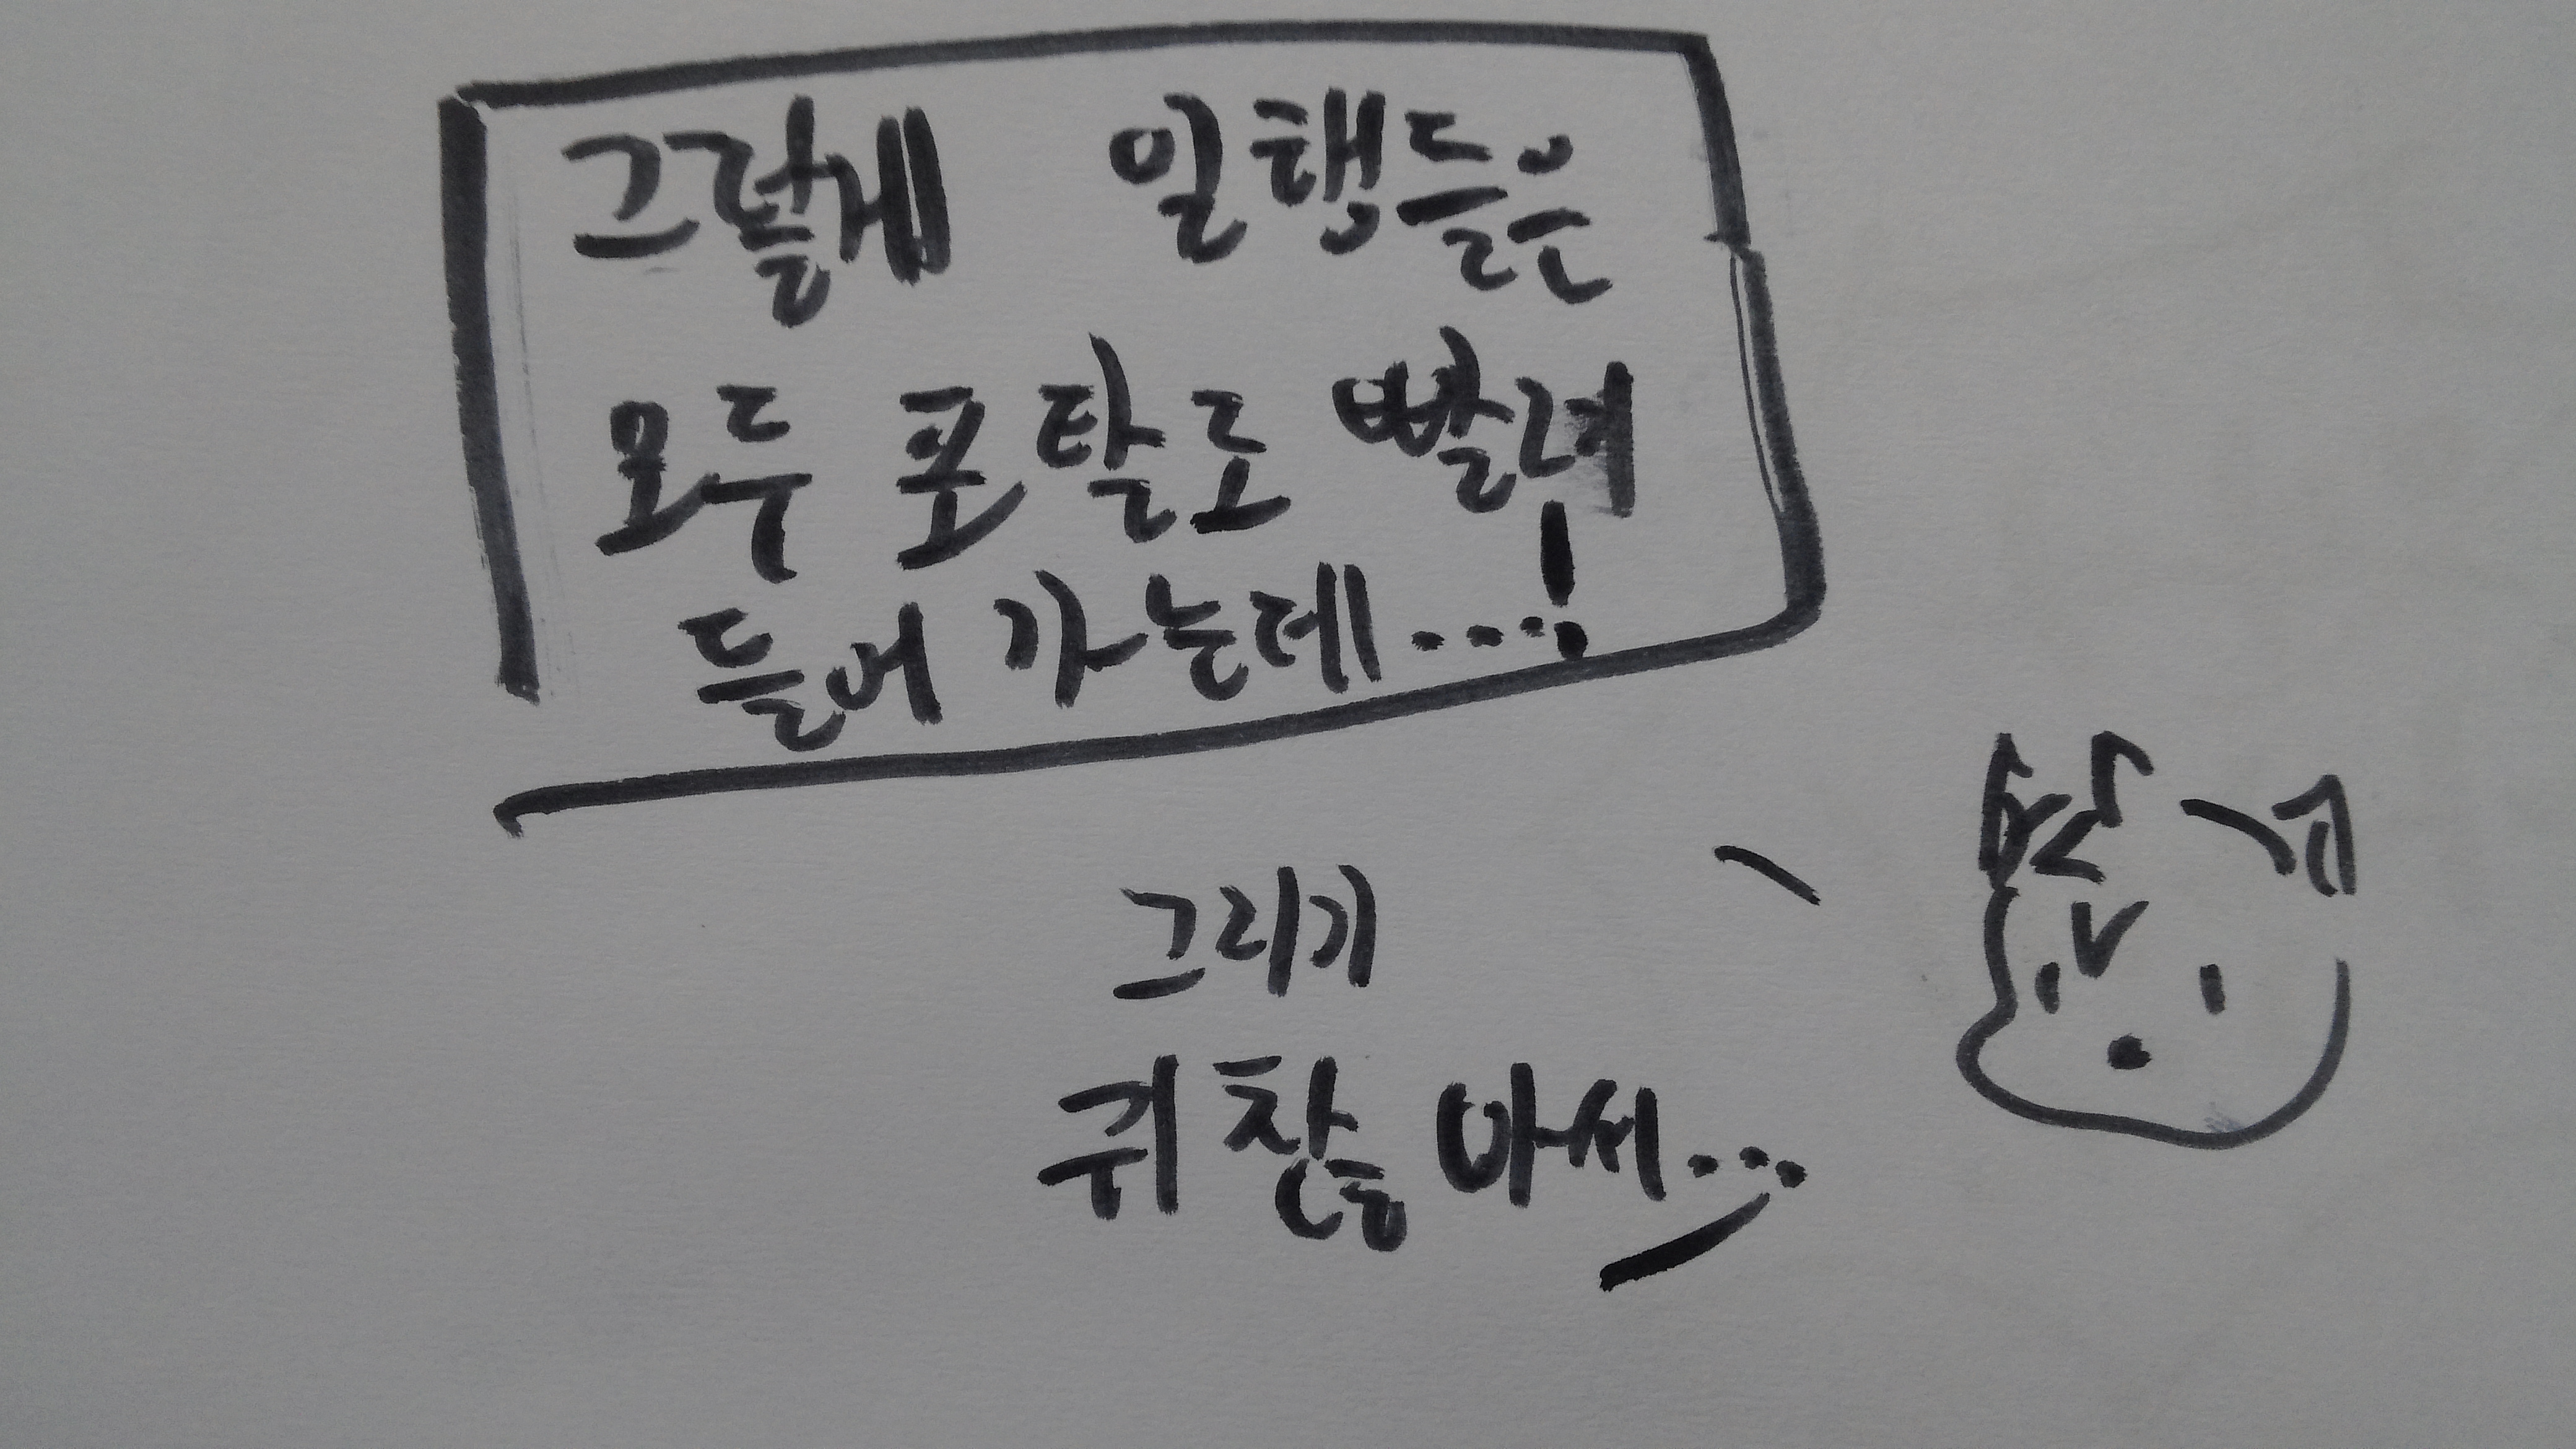 그렇게 일행들은
모두 포탈로 빨려
들어 가는데...!
그리기
귀찮아서...